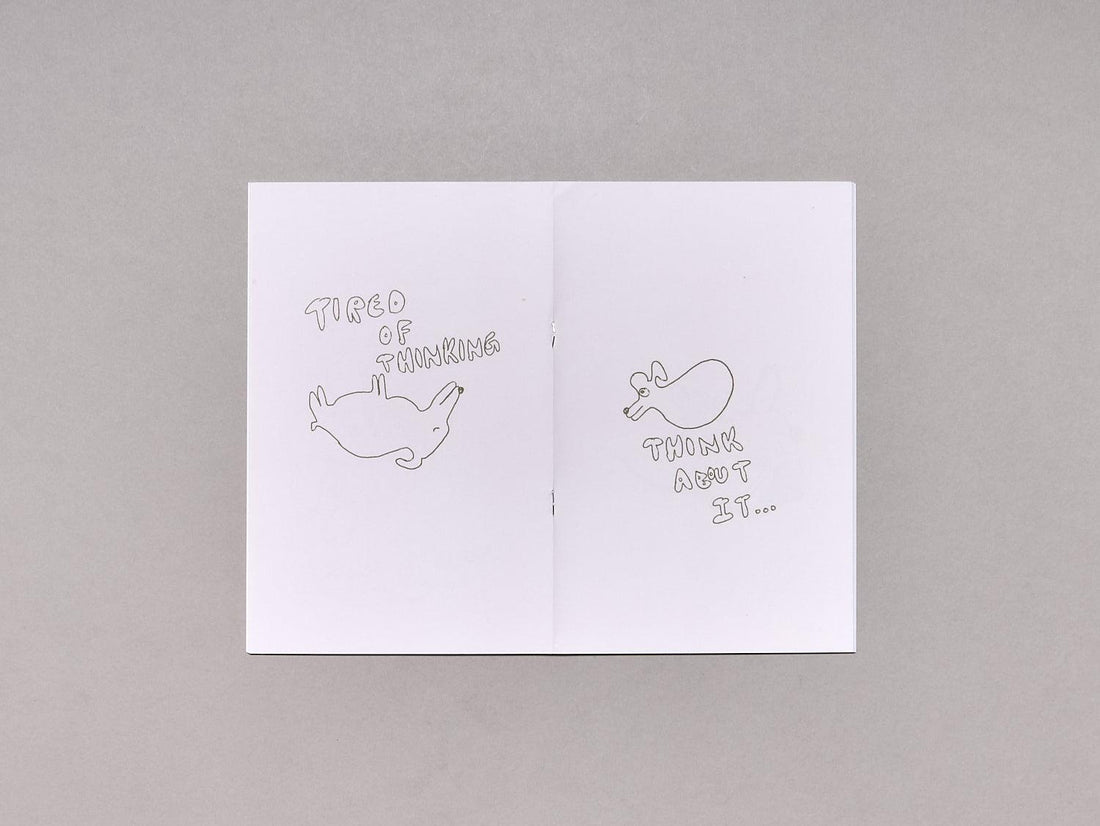 TIRED
OF
THINKING
THINK
ABOUT
IT...